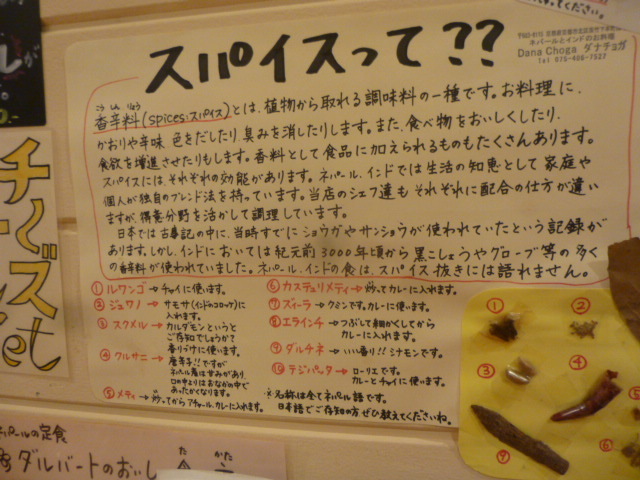 スパイスって??
ネパールとインドのお料理
Dana Choga ダナチョガ
Tel 075-406-7527
こうしんりょう
香辛料(spices:スパイス)とは、植物から取れる調味料の一種です。お料理に、
かおりや辛味、色をだしたり、臭みを消したりします。また、食べ物をおいしくしたり、
食欲を増進させたりもします。香料として食品に加えられるものもたくさんあります。
スパイスには、それぞれの効能があります。ネパール、インドでは生活の知恵として家庭や
個人が独自のブレンド法を持っています。当店のシェフ達もそれぞれに配合の仕方が違い
ますが、得意分野を活かして調理しています。
日本では古事記の中に、当時すでにショウガやサンショウが使われていたという記録が
あります。しかし、インドにおいては紀元前3000年頃から黒こしょうやグローブ等の多く
の香辛料が使われていました。ネパール、インドの食は、スパイス抜きには語れません。
①ルワンゴ→チャイに使います。
②ジュワノ→サモサ(インドのコロッケ)に
入れます。
③スクメル→カルダモンというと
ご存知でしょうか?
香りづけに使います。
④クルサニ→唐辛子!!ですが
ネパール産は甘みがあり、
口の中よりはおなかの中で
あったかくなります。
⑤メティ→炒ってからアチャール、カレーに入れます。
⑥カスデュリメティ→炒ってカレーに入れます。
⑦ズィーラ→クミンです。カレーに使います。
⑧エラインチ→つぶして細かくしてから
カレーに入れます。
⑨ダルチネ→いい香り!!シナモンです。
⑩テジパッタ→ローリエです。
カレーとチャイに使います。
※名称は全てネパール語です。
日本語でご存知の方ぜひ教えてくださいね。
①
②
③
④
⑤
⑥
⑨
チーズ
ネパールの定食
ダルバートのおいし
た
かた